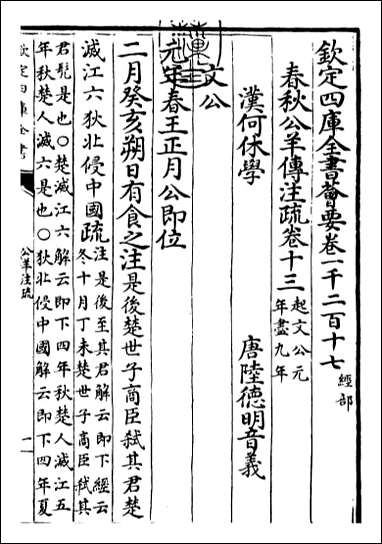 欽定四庫全書薈要卷一千二百十七 經部
春秋公羊傳注疏卷十三 起文公元年盡九年
漢何休學 唐陸德明音義
文公
元年春王正月公即位
二月癸亥朔日有食之注是後楚世子商臣弒其君楚
滅江六狄比侵中國疏注是後至其君解云即下經云冬十月丁未楚世子商臣弒其
君髡是也〇楚滅江六解云即下四年秋楚人滅江五
年秋楚人滅六是也〇狄比侵中國解云即下四年夏
欽定四庫全書
公羊注疏
一